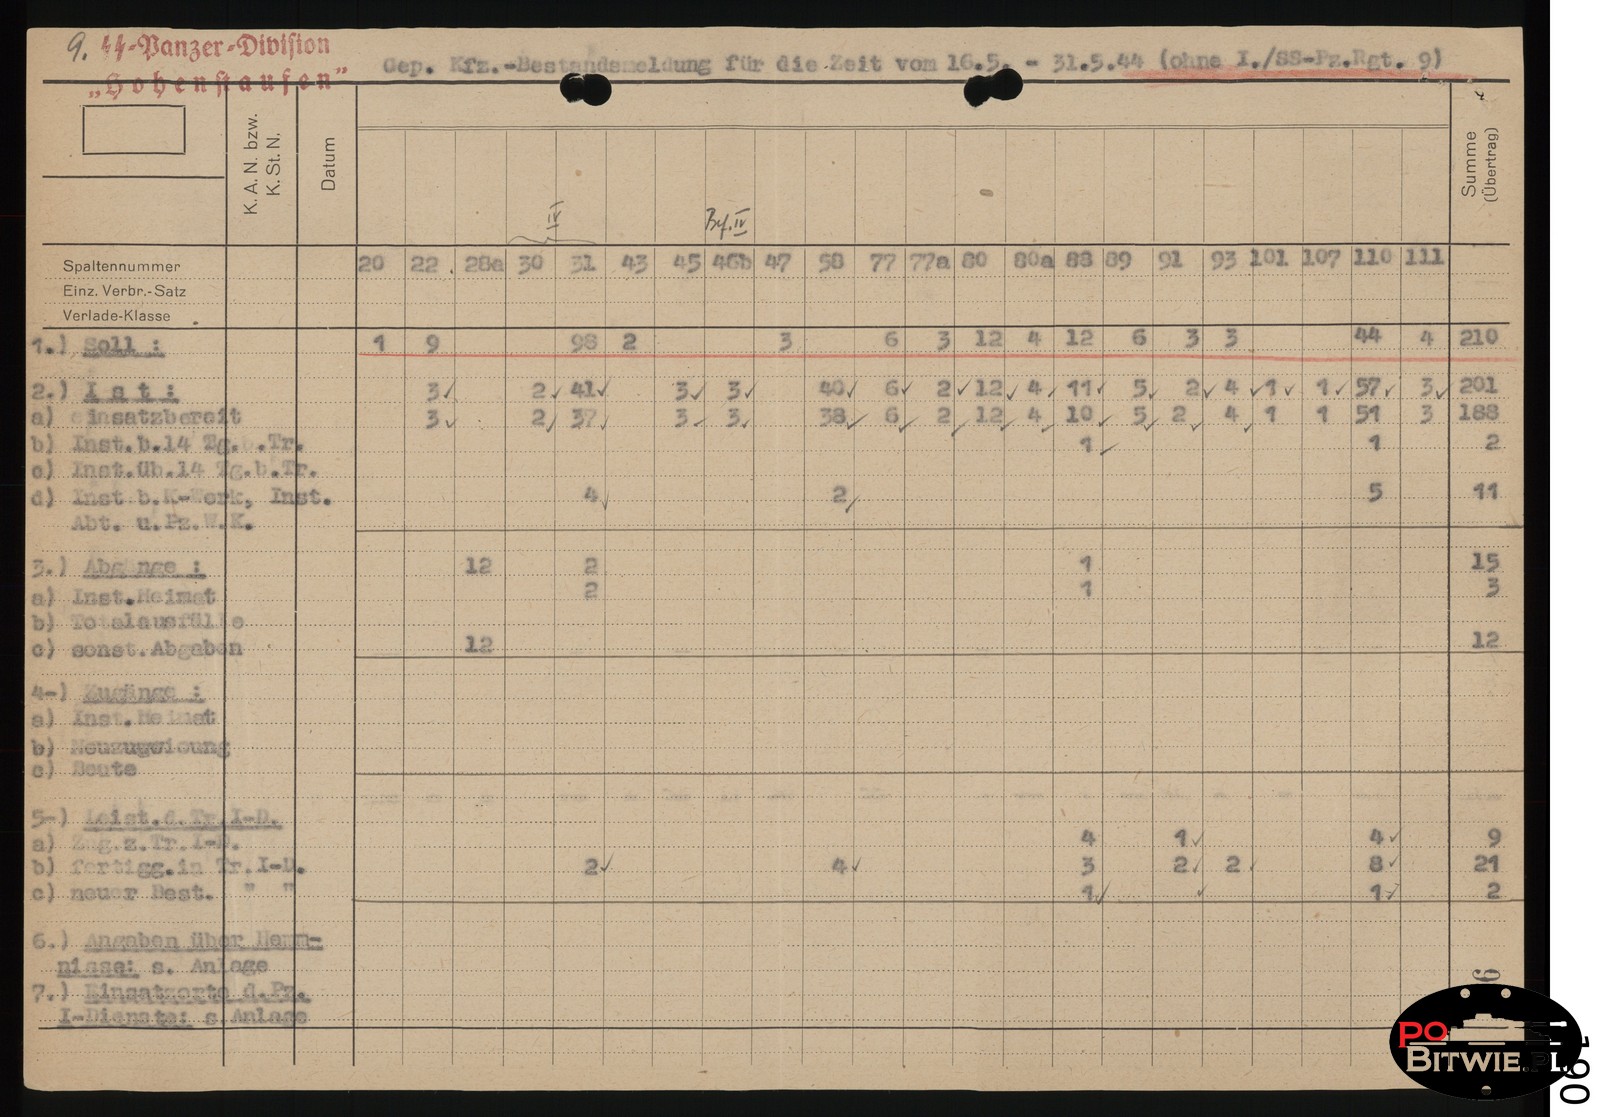 9. SS-Panzer-Division
„Hohenstaufen"
Gep. Kfz.-Bestandsmeldung für die Zeit vom 16.5. - 31.5.44 (ohne I./SS-Pz.Rgt. 9)
K. A. N. bzw.
K. St. N.
Datum
Summe
(Übertrag)
IV
Bef. IV
Spaltennummer 20 22 28a 30 31 43 45 46b 47 58 77 77a 80 80a 88 89 91 93 101 107 110 111
Einz. Verbr.-Satz
Verlade-Klasse
1.) Soll : 1 9 98 2 3 6 3 12 4 12 6 3 3 44 4 210
2.) Ist: 3✓ 2✓ 41✓ 3✓ 3✓ 40✓ 6✓ 2✓ 12✓ 4✓ 11✓ 5✓ 2✓ 4✓ 1✓ 1✓ 57✓ 3✓ 201
a) einsatzbereit 3✓ 2✓ 37✓ 3✓ 3✓ 38✓ 6✓ 2✓ 12✓ 4✓ 10✓ 5✓ 2✓ 4✓ 1 1 51 3 188
b) Inst.b.14 Tg.b.Tr. 1✓ 1 2
c) Inst.üb.14 Tg.b.Tr.
d) Inst b.K-Werk, Inst. 4✓ 2✓ 5 11
Abt. u.Pz.W.K.
3.) Abgänge : 12 2 1 15
a) Inst.Heimat 2 1 3
b) Totalausfälle
c) sonst.Abgaben 12 12
4-) Zugänge :
a) Inst.Heimat
b) Neuzuweisung
c) Beute
5-) Leist.d.Tr.I-D.
a) Zug.z.Tr.I-D. 4 1✓ 4✓ 9
b) fertigg.in Tr.I-D. 2✓ 4✓ 3 2✓ 2✓ 8✓ 21
c) neuer Best. " " 1✓ ✓ 1✓ 2
6.) Angaben über Hemm-
nisse: s. Anlage
7.) Einsatzorte d.Pz.
I-Dienste: s.Anlage
6
PO
BITWIE.PL
190